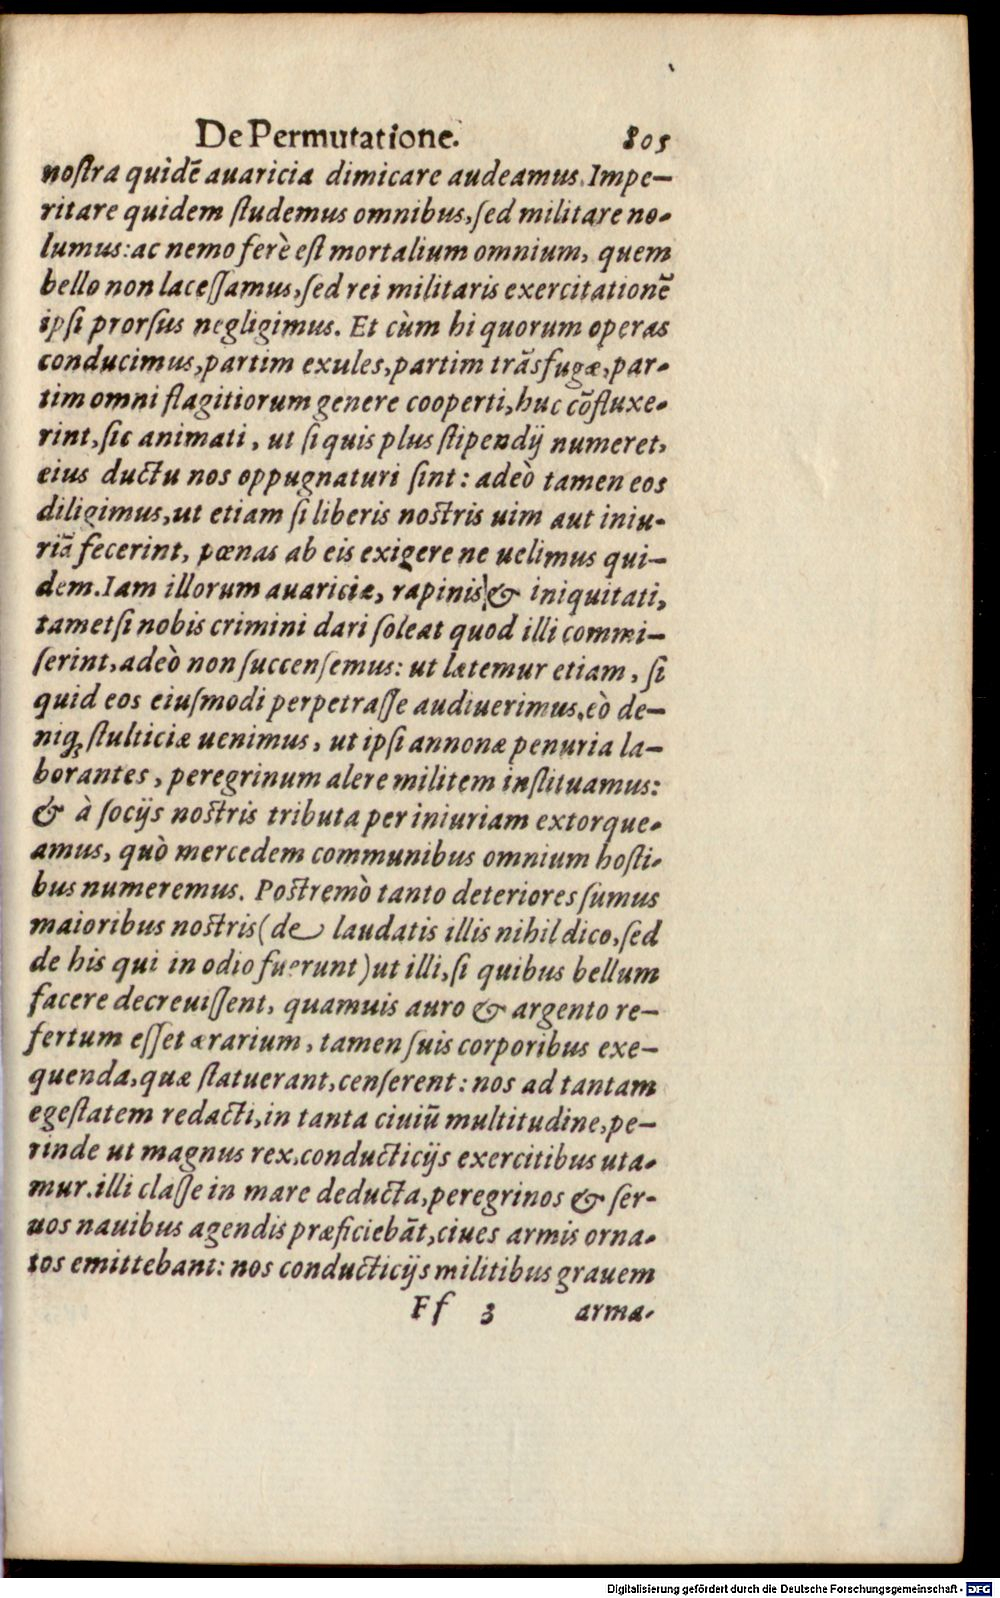 De Permutatione. 805
noſtra quidē auaricia dimicare audeamus. Impe-
ritare quidem ſtudemus omnibus, ſed militare no-
lumus: ac nemo ferè eſt mortalium omnium, quem
bello non laceſſamus, ſed rei militaris exercitationē
ipſi prorſus negligimus. Et cùm hi quorum operas
conducimus, partim exules, partim trāsfugæ, par-
tim omni flagitiorum genere cooperti, huc cōfluxe-
rint, ſic animati, ut ſi quis plus ſtipendij numeret,
eius ductu nos oppugnaturi ſint: adeò tamen eos
diligimus, ut etiam ſi liberis noſtris uim aut iniu-
riā fecerint, pœnas ab eis exigere ne uelimus qui-
dem. Iam illorum auariciæ, rapinis & iniquitati,
tametſi nobis crimini dari ſoleat quod illi commi-
ſerint, adeò non ſuccenſemus: ut lætemur etiam, ſi
quid eos eiuſmodi perpetraſſe audiuerimus. eò de-
niqꝫ ſtulticiæ uenimus, ut ipſi annonæ penuria la-
borantes, peregrinum alere militem inſtituamus:
& à ſocijs noſtris tributa per iniuriam extorque-
amus, quò mercedem communibus omnium hoſti-
bus numeremus. Poſtremò tanto deteriores ſumus
maioribus noſtris (de laudatis illis nihil dico, ſed
de his qui in odio fuerunt) ut illi, ſi quibus bellum
facere decreuiſſent, quamuis auro & argento re-
fertum eſſet ærarium, tamen ſuis corporibus exe-
quenda, quæ ſtatuerant, cenſerent: nos ad tantam
egeſtatem redacti, in tanta ciuiū multitudine, pe-
rinde ut magnus rex, conducticijs exercitibus uta-
mur. illi claſſe in mare deducta, peregrinos & ſer-
uos nauibus agendis præficiebāt, ciues armis orna-
tos emittebant: nos conducticijs militibus grauem
Ff 3 arma-
Digitalisierung gefördert durch die Deutsche Forschungsgemeinschaft - DFG